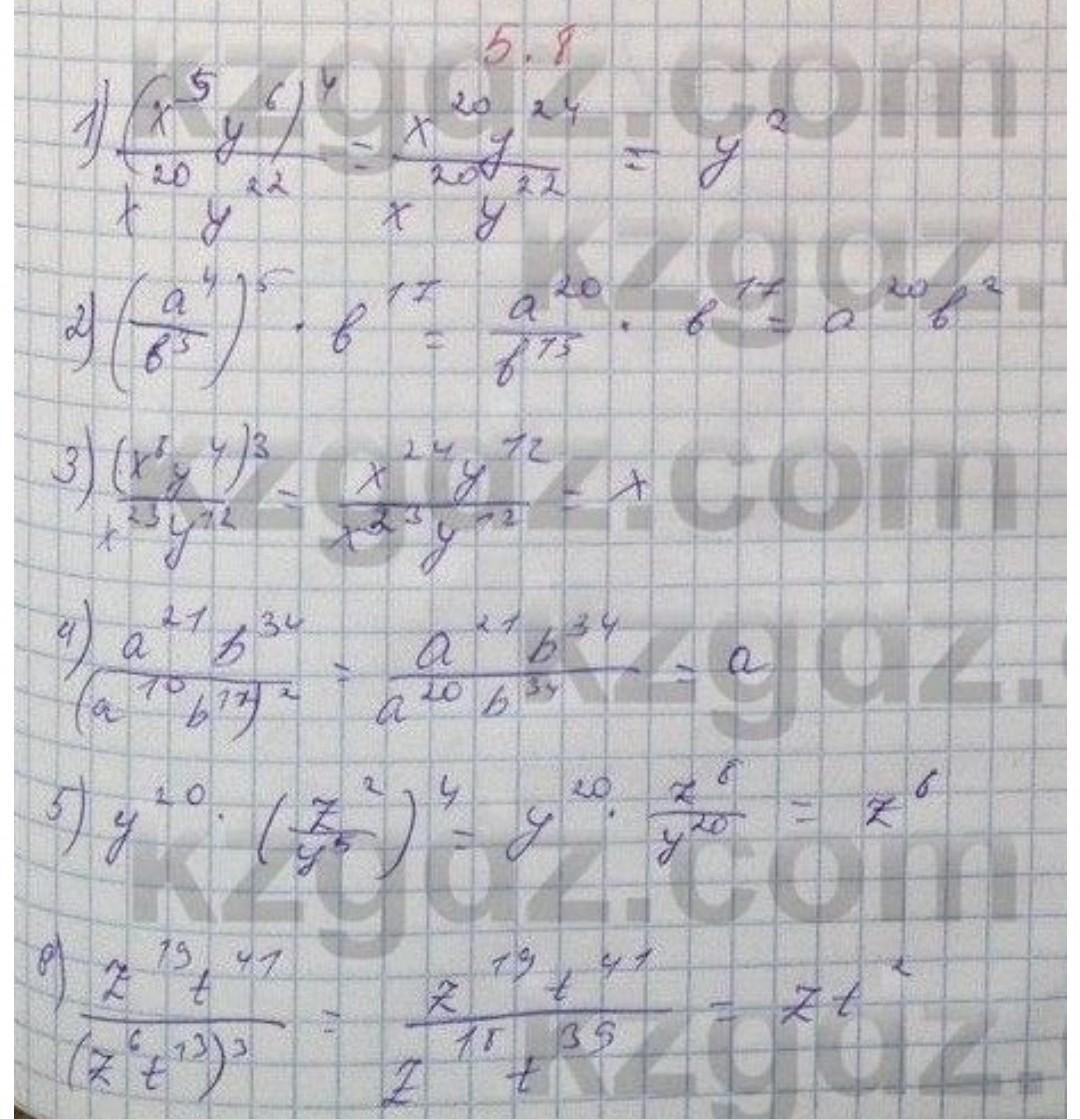 5.8
1) (x⁵y⁶)⁴/x²⁰y²² = x²⁰y²⁴/x²⁰y²² = y²
2) (a⁴/b³)⁵ · b¹⁷ = a²⁰/b¹⁵ · b¹⁷ = a²⁰b²
3) (x⁸y⁴)³/x²³y¹² = x²⁴y¹²/x²³y¹² = x
4) a²¹b³⁴/(a¹⁰b¹⁷)² = a²¹b³⁴/a²⁰b³⁴ = a
5) y²⁰ · (z²/y⁵)⁴ = y²⁰ · z⁸/y²⁰ = z⁸
6) z¹⁹t⁴¹/(z⁶t¹³)³ = z¹⁹t⁴¹/z¹⁸t³⁹ = zt²
kzgdz.com
kzgdz.
kzgdz.com
kzgdz.
kzgdz.com
kzgdz.